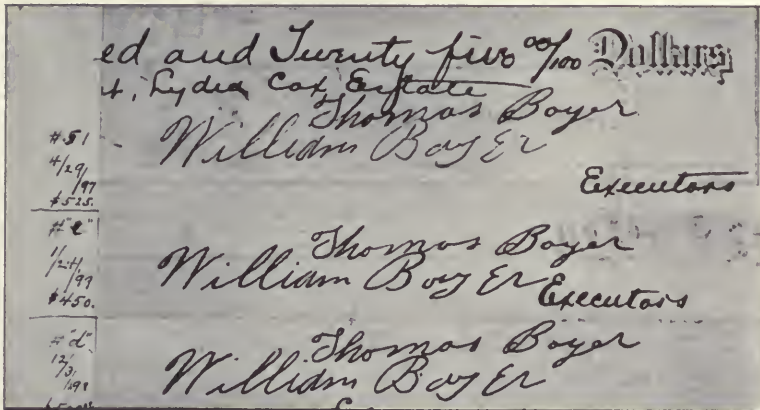 ed and Twenty five 00/100 Dollars
t, Lydia Cox, Estate
Thomas Boyer
William Boyer
Executors
#51
4/29/97
$525.
Thomas Boyer
William Boyer
Executors
#"e"
1/24/99
$450.
Thomas Boyer
William Boyer
#"d"
12/31